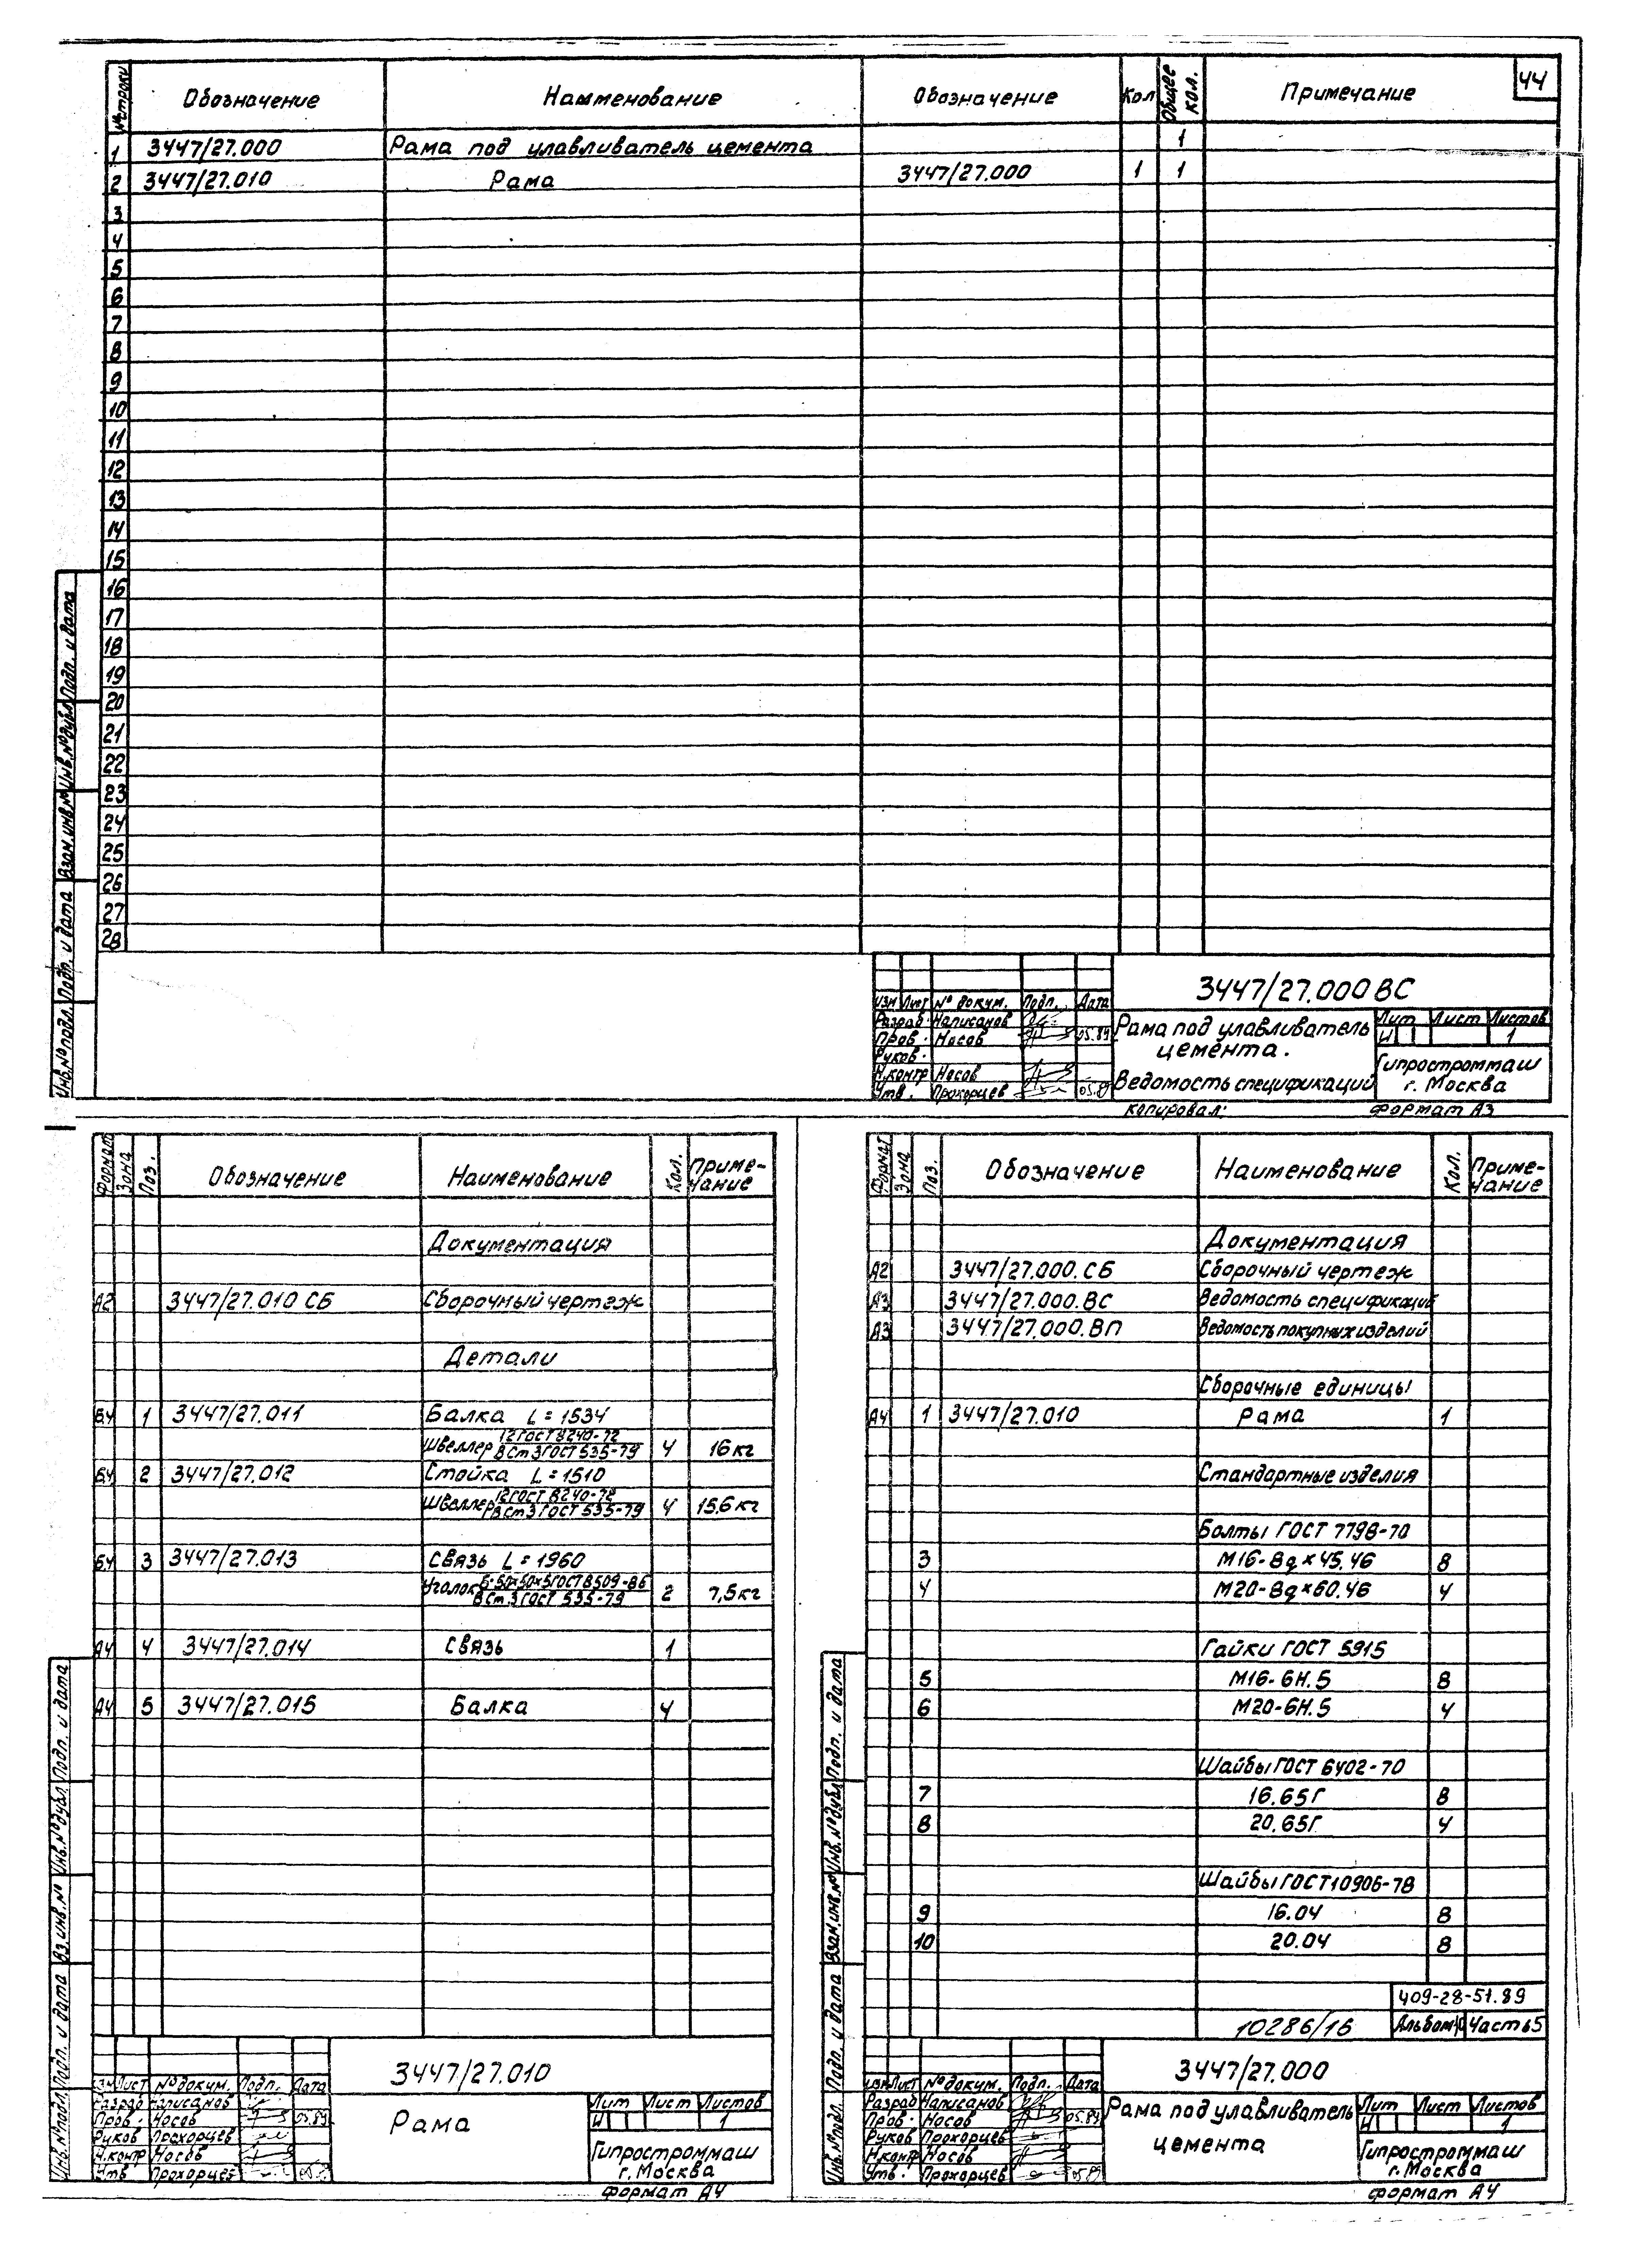 44
№ строки Обозначение Наименование Обозначение Кол Общее кол. Примечание
1 3447/27.000 Рама под улавливатель цемента 1
2 3447/27.010 Рама 3447/27.000 1 1
3
4
5
6
7
8
9
10
11
12
13
14
15
16
17
18
19
20
21
22
23
24
25
26
27
28
Инв.№подл. Подп. и дата Взам.инв.№ Инв.№дубл. Подп. и дата
3447/27.000 ВС
Изм Лист № докум. Подп. Дата
Разраб. Написанов
Пров. Носов 05.89
Руков.
Н.контр Носов
Утв. Прохорцев 05.89
Рама под улавливатель
цемента.
Ведомость спецификаций
Лит Лист Листов
И 1
Гипростроммаш
г. Москва
Копировал: Формат А3
Формат Зона Поз. Обозначение Наименование Кол. Приме-
чание
Документация
А2 3447/27.010 СБ Сборочный чертеж
Детали
Б.Ч 1 3447/27.011 Балка L=1534
Швеллер 12 ГОСТ 8240-72 / В Ст 3 ГОСТ 535-79 4 16 кг
Б.Ч 2 3447/27.012 Стойка L=1510
Швеллер 12 ГОСТ 8240-72 / В Ст 3 ГОСТ 535-79 4 15.6 кг
Б.Ч 3 3447/27.013 Связь L=1960
Уголок Б-50×50×5 ГОСТ 8509-86 / В Ст.3 ГОСТ 535-79 2 7,5 кг
А4 4 3447/27.014 Связь 1
А4 5 3447/27.015 Балка 4
Инв.№подл. Подп. и дата Вз.инв.№ Инв.№дубл. Подп. и дата
3447/27.010
Изм Лист № докум. Подп. Дата
Разраб Написанов
Пров. Носов 05.89
Руков Прохорцев
Н.контр Носов
Утв Прохорцев
Рама
Лит Лист Листов
И 1
Гипростроммаш
г. Москва
Формат А4
Формат Зона Поз. Обозначение Наименование Кол. Приме-
чание
Документация
А2 3447/27.000.СБ Сборочный чертеж
А3 3447/27.000.ВС Ведомость спецификаций
А3 3447/27.000.ВП Ведомость покупных изделий
Сборочные единицы
А4 1 3447/27.010 Рама 1
Стандартные изделия
Болты ГОСТ 7798-70
3 М16-8g×45.46 8
4 М20-8g×60.46 4
Гайки ГОСТ 5915
5 М16-6Н.5 8
6 М20-6Н.5 4
Шайбы ГОСТ 6402-70
7 16.65Г 8
8 20.65Г 4
Шайбы ГОСТ 10906-78
9 16.04 8
10 20.04 8
409-28-51.89
10286/16 Альбом Часть 5
Инв.№подл. Подп. и дата Взам.инв.№ Инв.№дубл. Подп. и дата
3447/27.000
Изм Лист № докум. Подп. Дата
Разраб Написанов
Пров. Носов 05.89
Руков Прохорцев
Н.контр Носов
Утв. Прохорцев 05.89
Рама под улавливатель
цемента
Лит Лист Листов
И 1
Гипростроммаш
г. Москва
Формат А4